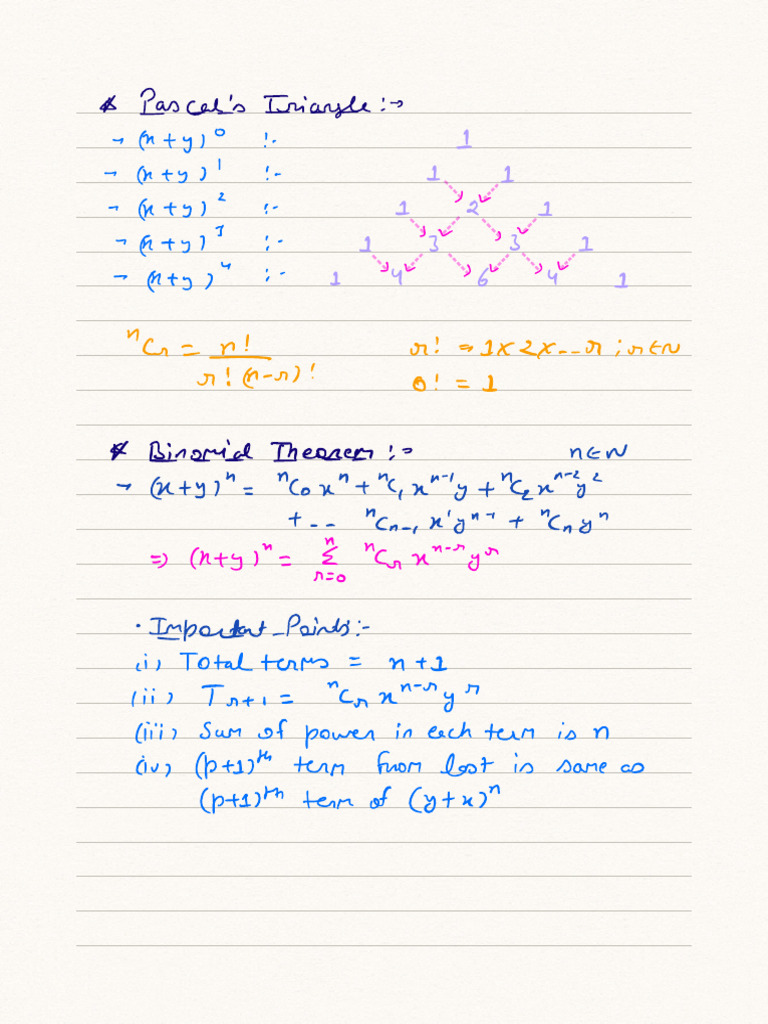 * Pascal's Triangle :→
→ (x+y)⁰ :- 1
→ (x+y)¹ :- 1 1
→ (x+y)² :- 1 2 1
→ (x+y)³ :- 1 3 3 1
→ (x+y)⁴ :- 1 4 6 4 1
ⁿCr = n! / r!(n-r)! r! → 1×2×--r ; r∈N
0! = 1
* Binomial Theorem :→ n∈N
→ (x+y)ⁿ = ⁿC₀xⁿ + ⁿC₁xⁿ⁻¹y + ⁿC₂xⁿ⁻²y²
+-- ⁿCₙ₋₁x¹yⁿ⁻¹ + ⁿCₙyⁿ
⇒ (x+y)ⁿ = Σ_{r=0}^{n} ⁿCr xⁿ⁻ʳyʳ
· Important Points:-
(i) Total terms = n+1
(ii) Tr+1 = ⁿCr xⁿ⁻ʳyʳ
(iii) Sum of power in each term is n
(iv) (p+1)ᵗʰ term from last is same as
(p+1)ᵗʰ term of (y+x)ⁿ